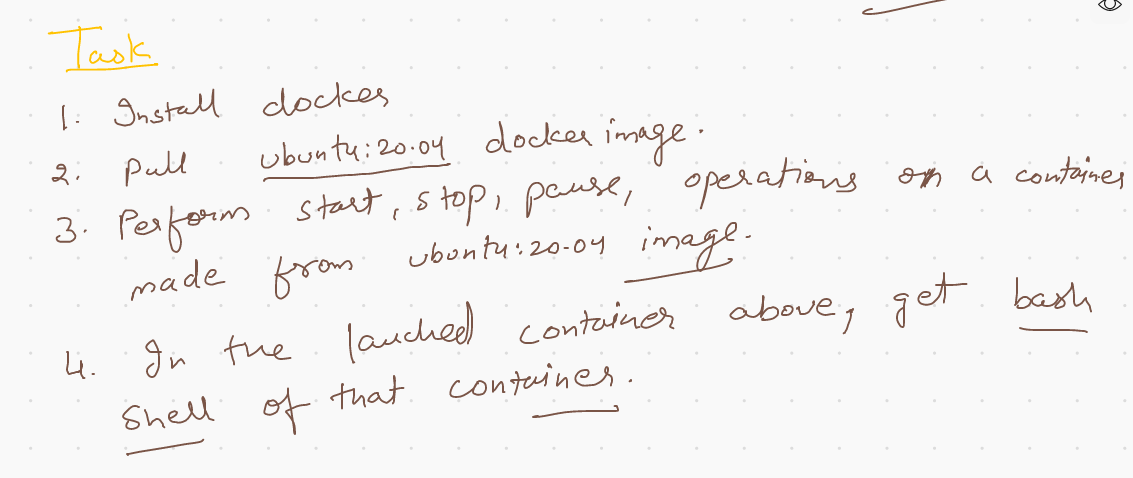 Task
1. Install docker
2. Pull ubuntu:20.04 docker image.
3. Perform start, stop, pause, operations on a container
made from ubuntu:20.04 image.
4. In the lauched container above, get bash
shell of that container.